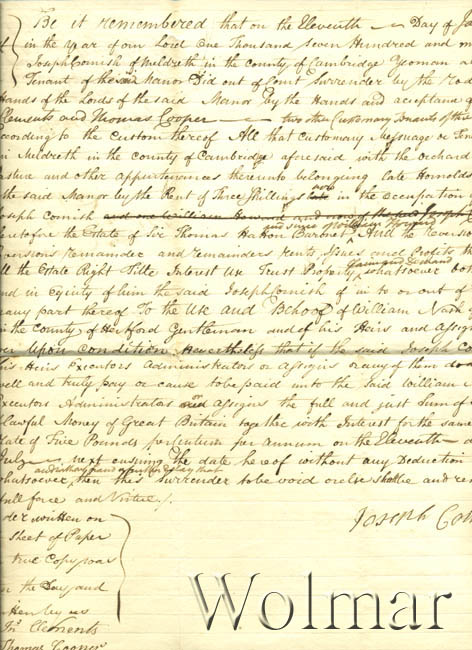 Be it remembered that on the Eleventh Day of Ja
in the year of our Lord One Thousand Seven Hundred and
Joseph Cornish of Meldreth in the county of Cambridge Yeoman a
Tenant of the said Manor Did out of Court Surrender by the Rod
Hands of the Lords of the said Manor by the Hands and acceptance
Clements and Thomas Cooper two other Customary Tenants of this
according to the custom thereof All that customary Messuage or
in Meldreth in the county of Cambridge aforesaid with the orchard
and other appurtenances thereunto belonging late
the said Manor by the Rent of Three Shillings now in the occupation
Joseph Cornish
heretofore the Estate of Sir Thomas Hatton Baronet And the Reversion
remainder and remainders rents Issues and profits
all the Estate Right Title Interest Use Trust Property whatsoever both
and in equity of him the said Joseph Cornish of in to or out of
any part thereof To the Use and Behoof of William
in the county of Hertford Gentleman and of his Heirs and Assigns
Upon condition Nevertheless that if the said Joseph Co
his Heirs Executors Administrators or Assigns or any of them do
well and truly pay or cause to be paid unto the said William
Executors Administrators or Assigns the full and just Sum of
Lawful Money of Great Britain together with Interest for the same
Rate of Five Pounds per centum per annum on the Eleventh
July next ensuing the date hereof without any Deduction
whatsoever, then this Surrender to be void or else shall be and
full force and Virtue
written on
Sheet of Paper
true Copy was
in the Day and
by us
Jno. Clements
Thomas Cooper
Joseph Co
Wolmar